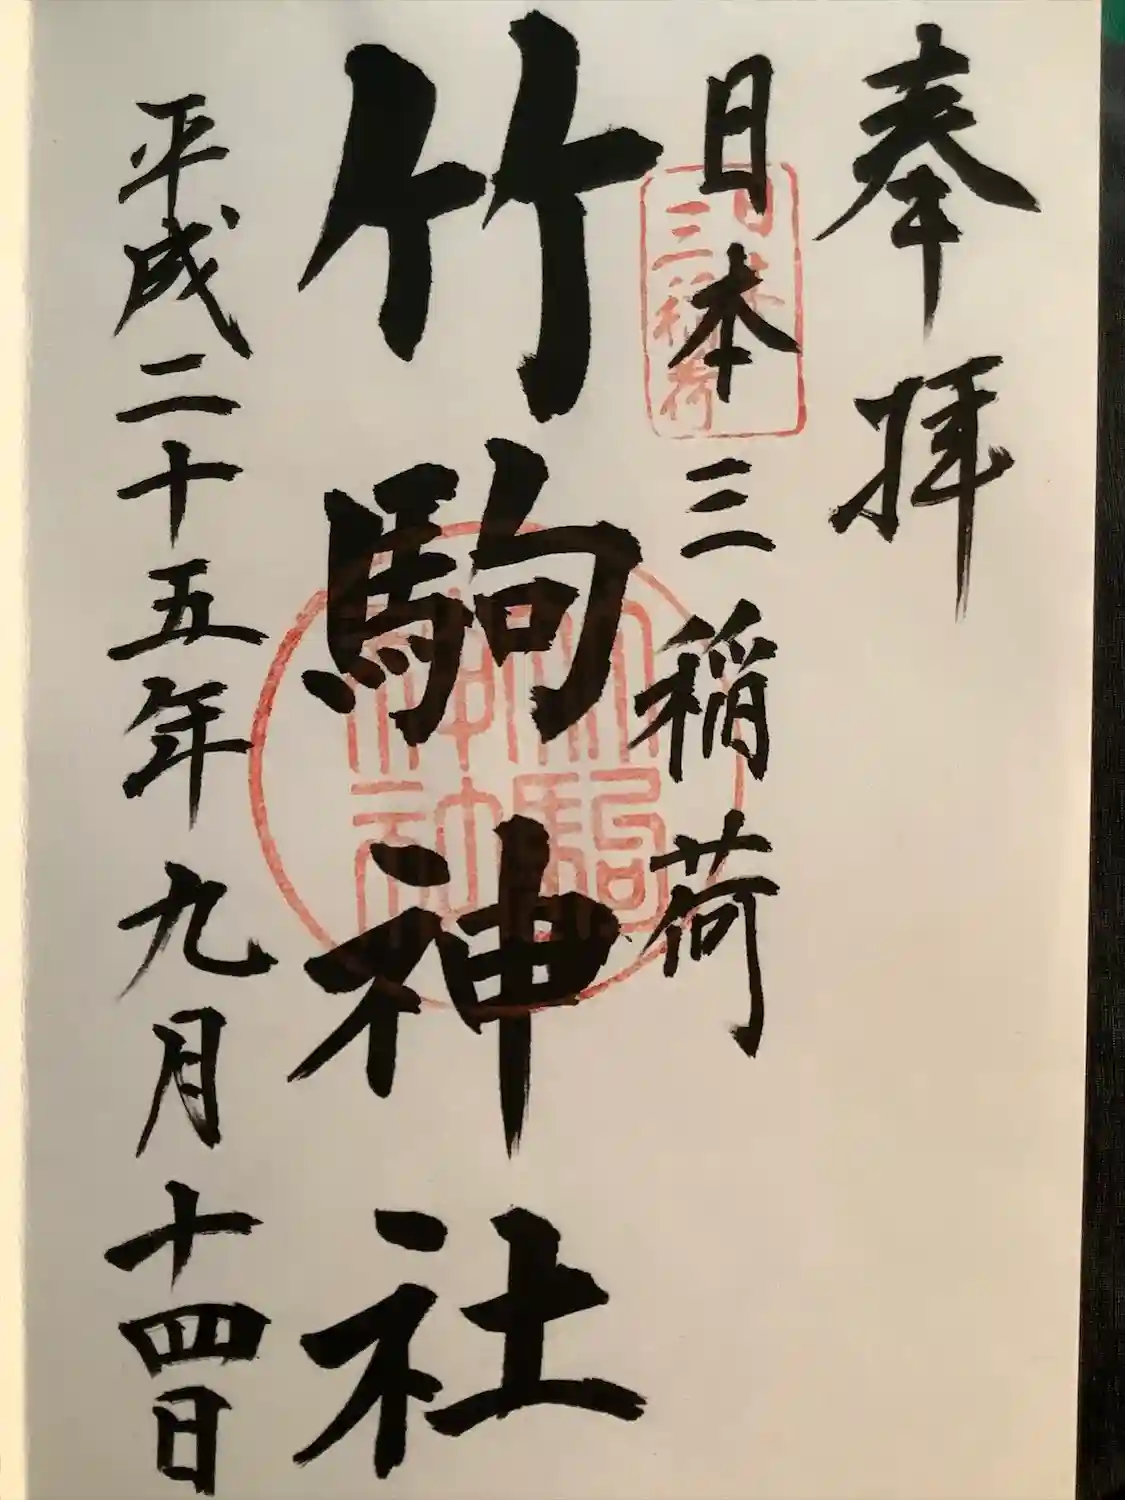 奉拝
日本三稲荷
日本
三稲荷
竹駒神社
竹駒
神社
平成二十五年九月十四日